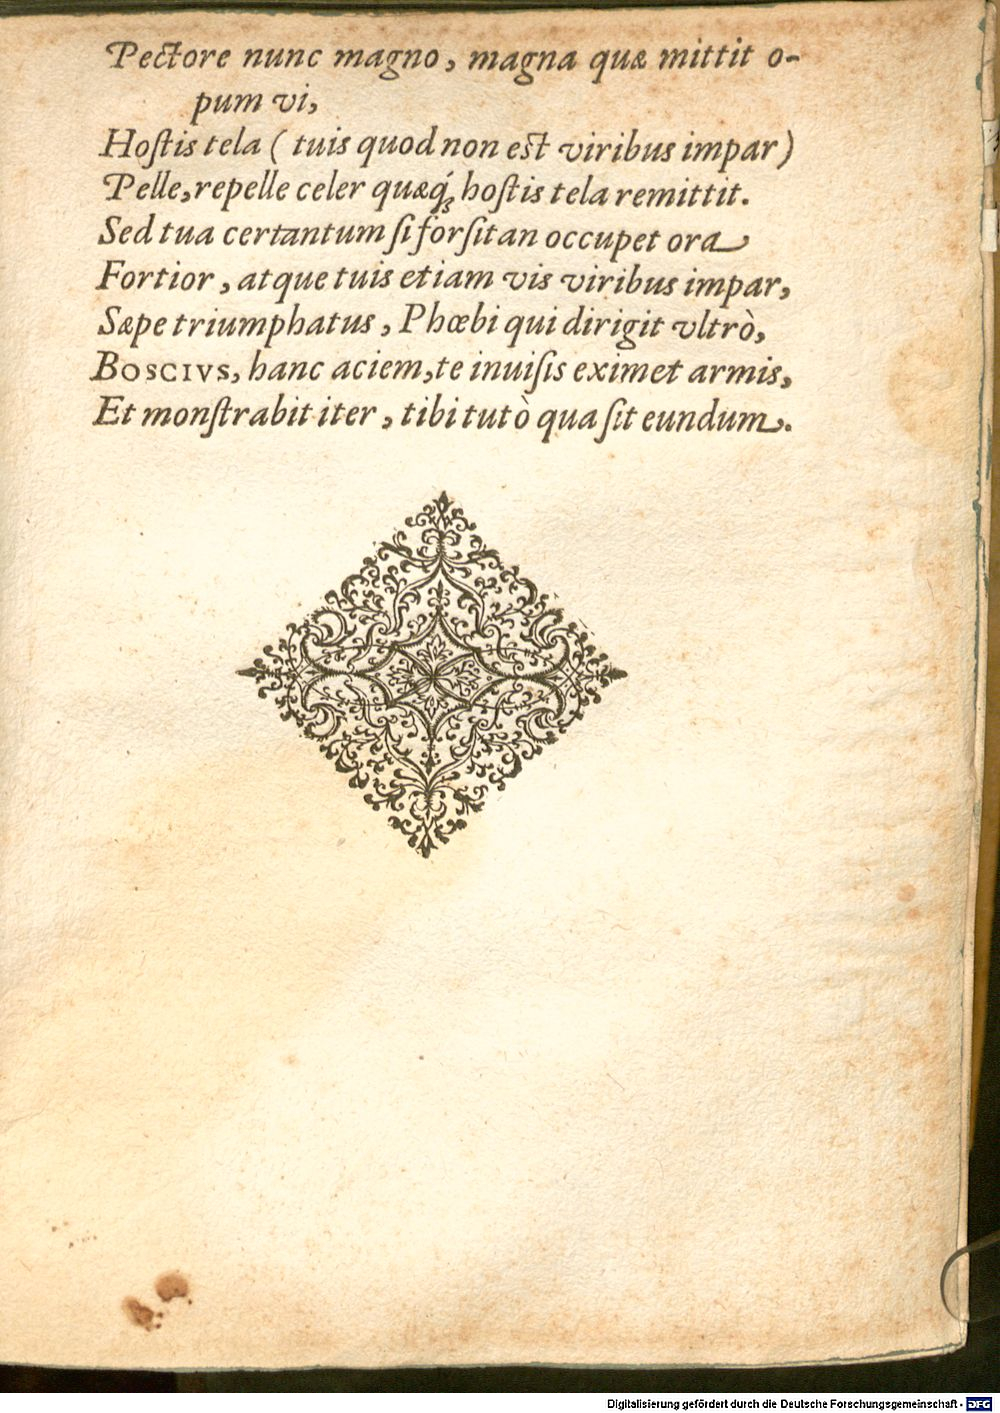 Pectore nunc magno, magna quæ mittit o-
pum vi,
Hoſtis tela ( tuis quod non est viribus impar)
Pelle, repelle celer quæq́ꝫ hoſtis tela remittit.
Sed tua certantum ſi forſitan occupet ora
Fortior, atque tuis etiam vis viribus impar,
Sæpe triumphatus, Phœbi qui dirigit vltrò,
BOSCIVS, hanc aciem, te inuiſis eximet armis,
Et monſtrabit iter, tibi tutò qua ſit eundum.
Digitalisierung gefördert durch die Deutsche Forschungsgemeinschaft - DFG